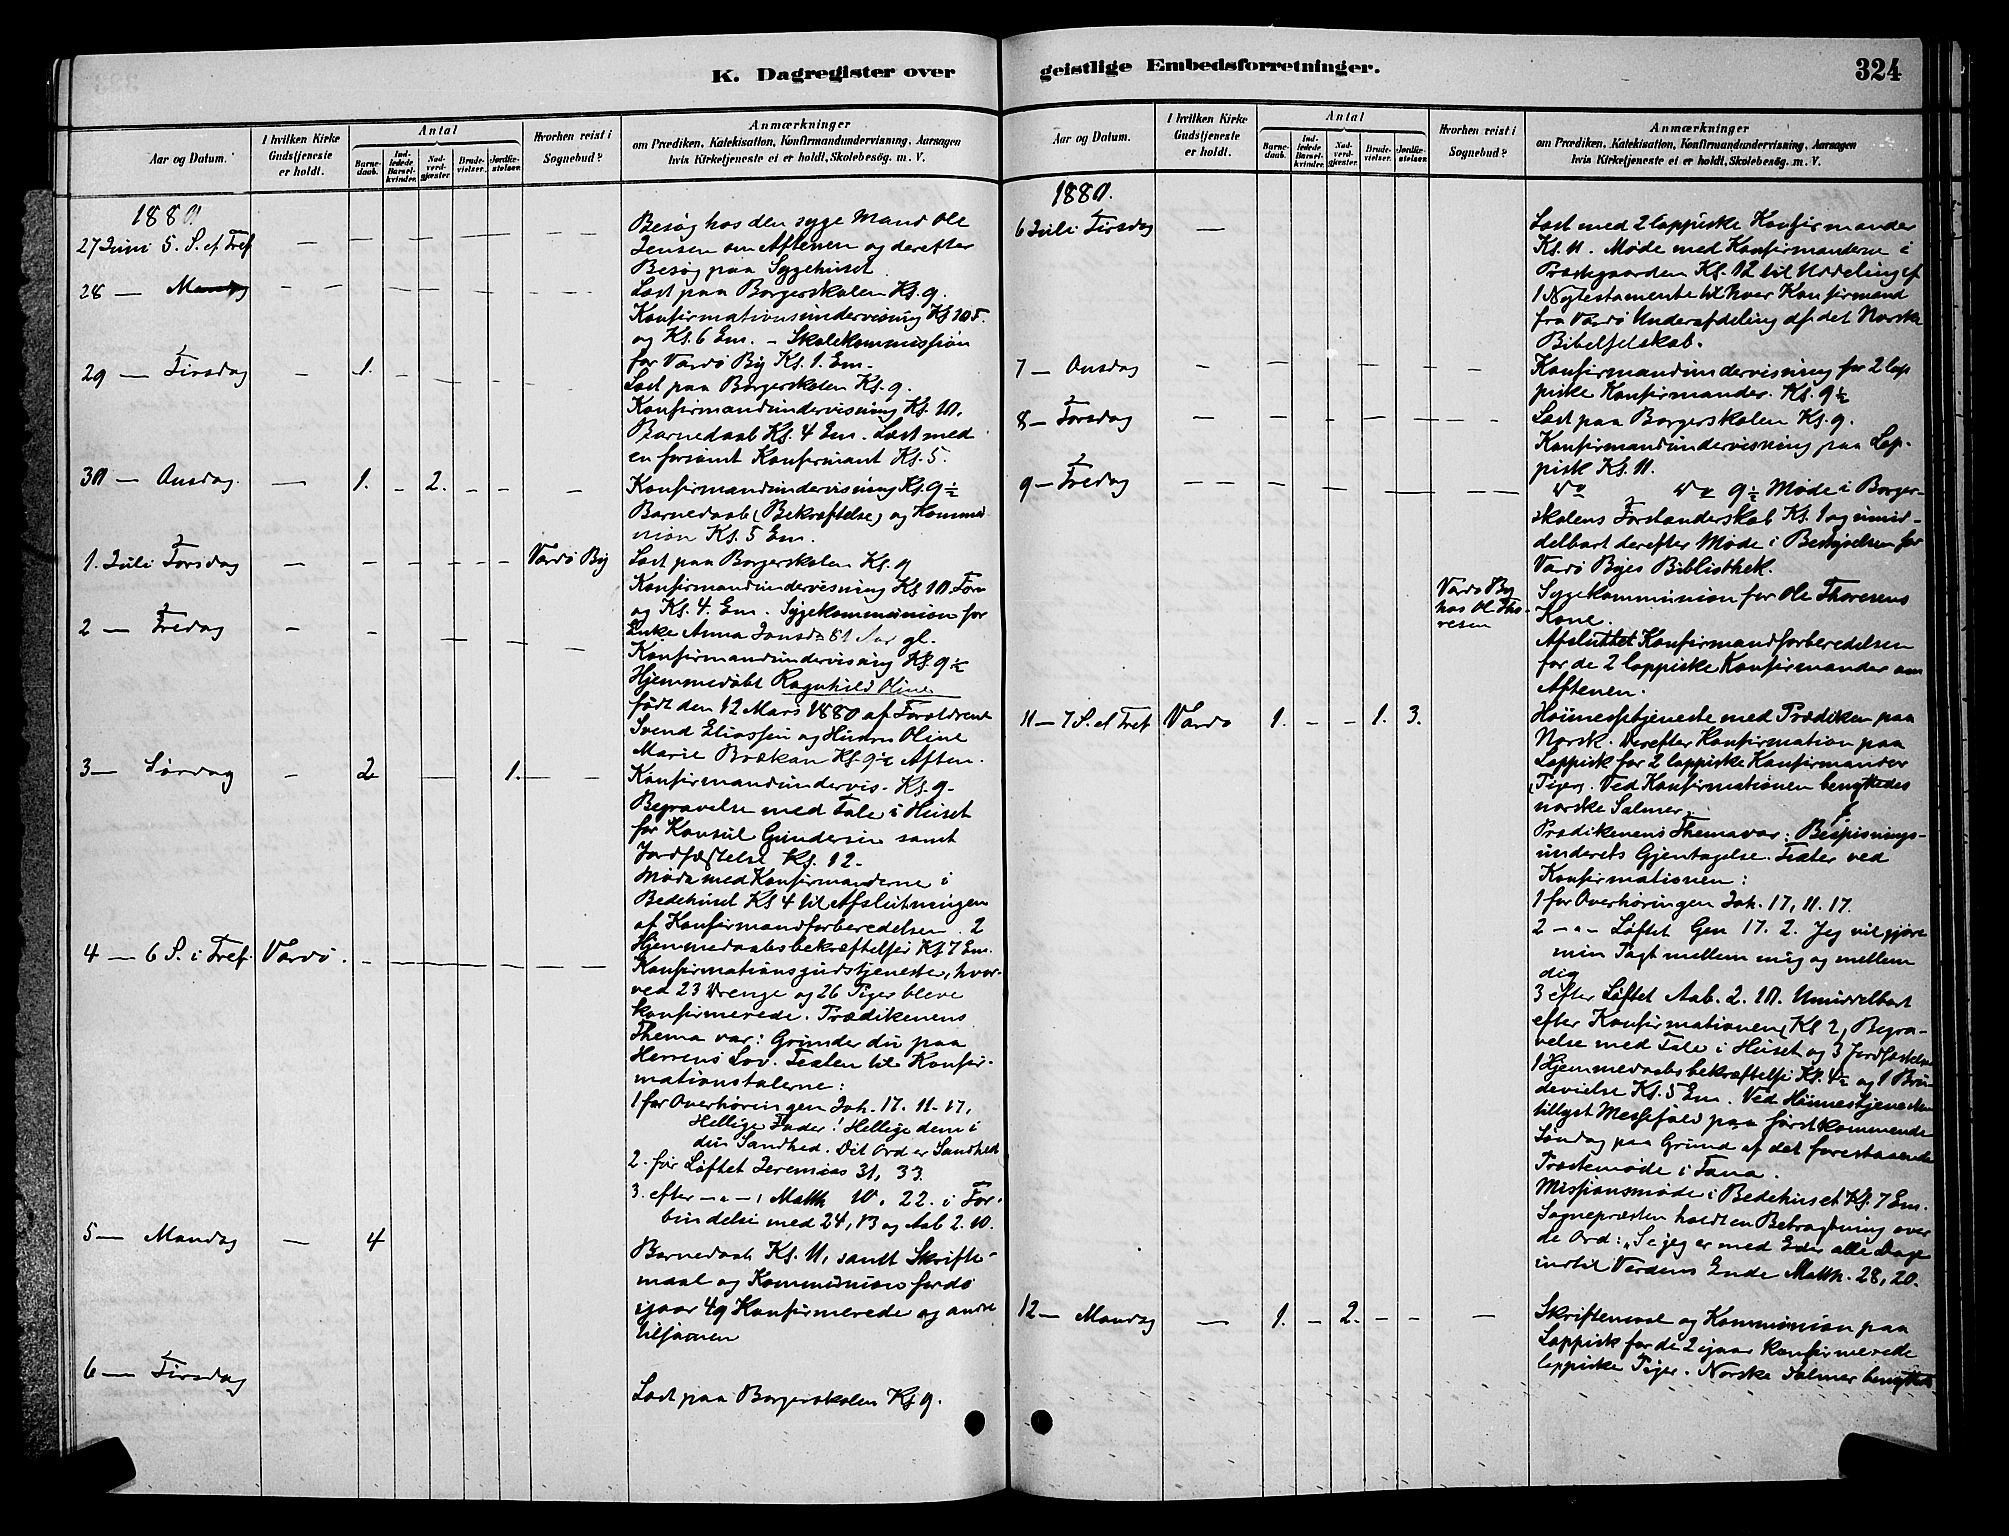 K. Dagregister over
Aar og Datum.
I hvilken Kirke
Gudstjeneste
er holdt.
Antal
Barne-
daab.
Ind-
ledede
Barsel-
kvinder.
Nad-
verd-
gjæster.
Brude-
vielser.
Jordfæ-
stelser.
Hvorhen reist i
Sognebud?
Anmærkninger
om Prædiken, Katekisation, Konfirmandundervisning, Aarsagen
hvis Kirketjeneste ei er holdt, Skolebesøg. m. V.
1880
27 Juni 5. S. ef Tref
Besøg hos den syge Mand Ole
Jensen om Aftenen og derefter
Besøg paa Sygehuset
28 — Mandag
Læst paa Borgerskolen Kl. 9.
Konfirmationsundervisning Kl 10 5.
og Kl. 6 Em. – Skolekommission
for Vardø By Kl. 1. Em.
29 — Tirsdag — 1.
Læst paa Borgerskolen Kl. 9.
Konfirmandundervisning Kl. 10.
Barnedaab Kl. 4 Em. Læst med
en forsømt Konfirmant Kl. 5.
30 — Onsdag. — 1. – 2. – – –
Konfirmandundervisning Kl. 9 ½
Barnedaab (Bekræftelse) og Kommu-
nion Kl. 5 Em.
1. Juli Torsdag — – – – – – Vardø By
Læst paa Borgerskolen Kl. 9
Konfirmandundervisning Kl 10 For
og Kl. 4. Em. Sygekommunion for
Enke Anna Jonsd. 81 Aar gl.
2 — Fredag
Konfirmandundervisning Kl. 9 ½
Hjemmedøbt Ragnhild Oline
født den 12 Mars 1880 af Forældrene
Svend Eliassen og Hustru Oline
Marie Brækan Kl. 9 ½ Aften.
3 — Lørdag – 2 — 1. — —
Konfirmandundervis. Kl. 9.
Begravelse med Tale i Huset
for Konsul Gundersen samt
Jordfæstelse Kl. 12.
Møde med Konfirmanderne i
Bedehuset Kl 4 til Afslutningen
af Konfirmandforberedelsen. 2
Hjemmedaabsbekræftelser Kl 7 Em.
4 — 6 S. i Tref. Vardø.
Konfirmationsgudstjeneste, hvor-
ved 23 Drenge og 26 Piger bleve
konfirmerede. Prædikenens
Thema var: Grunder du paa
Herrens Lov. Texten til Konfir-
mationstalerne:
1 for Overhøringen Joh. 17. 11. 17,
Hellige Fader! Hellige dem i
din Sandhed. Dit Ord er Sandhed
2. før Løftet Jeremias 31, 33.
3. efter – „ – , Matth 10. 22. i For-
bindelse med 24, 13 og Aab 2. 10.
5 — Mandag — 4
Barnedaab Kl. 11, samt Skrifte-
maal og Kommunion for de
igaar 49 Konfirmerede og andre
6 — Tirsdag
Læst paa Borgerskolen Kl 9.
geistlige Embedsforretninger.
324
Aar og Datum.
I hvilken Kirke
Gudstjeneste
er holdt.
Antal
Barne-
daab.
Ind-
ledede
Barsel-
kvinder.
Nad-
verd-
gjæster.
Brude-
vielser.
Jordfæ-
stelser.
Hvorhen reist i
Sognebud?
Anmærkninger
om Prædiken, Katekisation, Konfirmandundervisning, Aarsagen
hvis Kirketjeneste ei er holdt, Skolebesøg. m. V.
1880.
6 Juli Tirsdag —
Læst med 2 lappiske Konfirmander
Kl. 11. Møde med Konfirmanderne i
Præstgaarden Kl. 12 til Uddeling af
1 Nytestamente til hver Konfirmand
fra Vardø Underafdeling af det Norske
Bibelselskab.
7 — Onsdag
Konfirmandundervisning for 2 lap
piske Konfirmander. Kl. 9 ½
8 — Torsdag
Læst paa Borgerskolen Kl. 9.
Konfirmandundervisning paa Lap-
pisk Kl. 11.
9 — Fredag
Do Do 9 ½ Møde i Borger-
skolens Forstanderskab Kl. 1 og umid-
delbart derefter Møde i Bestyrelsen for
Vardø Byes Bibliothek.
Vardø By
hos Ol. Tho-
resen
Sygekommunion for Ole Thoresens
Kone.
Afsluttet Konfirmandforberedelsen
for de 2 lappiske Konfirmander om
Aftenen.
11 — 7 S. ef Tref Vardø 1. – – 1. 3.
Høimessetjeneste med Prædiken paa
Norsk. Derefter Konfirmation paa
Lappisk for 2 lappiske Konfirmander
(Piger). Ved Konfirmationen benyttedes
norske Salmer.
Prædikenens Thema var: Bespisnings-
underets Gjentagelse. Texter ved
Konfirmationen:
1 for Overhøringen Joh. 17, 11. 17.
2 – „ – Løftet Gen 17. 2. Jeg vil gjøre
min Pagt mellem mig og mellem
dig
3 efter Løftet Aab. 2. 10. Umiddelbart
efter Konfirmationen (Kl 2) Begra-
velse med Tale i Huset og 3 Jordfæstelser
1 Hjemmedaabsbekræftelse Kl. 4 ½ og 1 Bru-
devielse Kl. 5 Em. Ved Høimessetjenesten
tillyst Messefald paa førstkommende
Søndag paa Grund af det forestaaende
Præstemøde i Tana.
Missionsmøde i Bedehuset Kl. 7 Em.
Sognepræsten holdt en Betragtning over
de Ord: „Se jeg er med Eder alle Dage
indtil Verdens Ende Matth. 28, 20.
12 — Mandag — 1. – 2. – – —
Skriftemaal og Kommunion paa
Lappisk for de 2 igaar konfirmerede
lappiske Piger. Norske Salmer benyttet